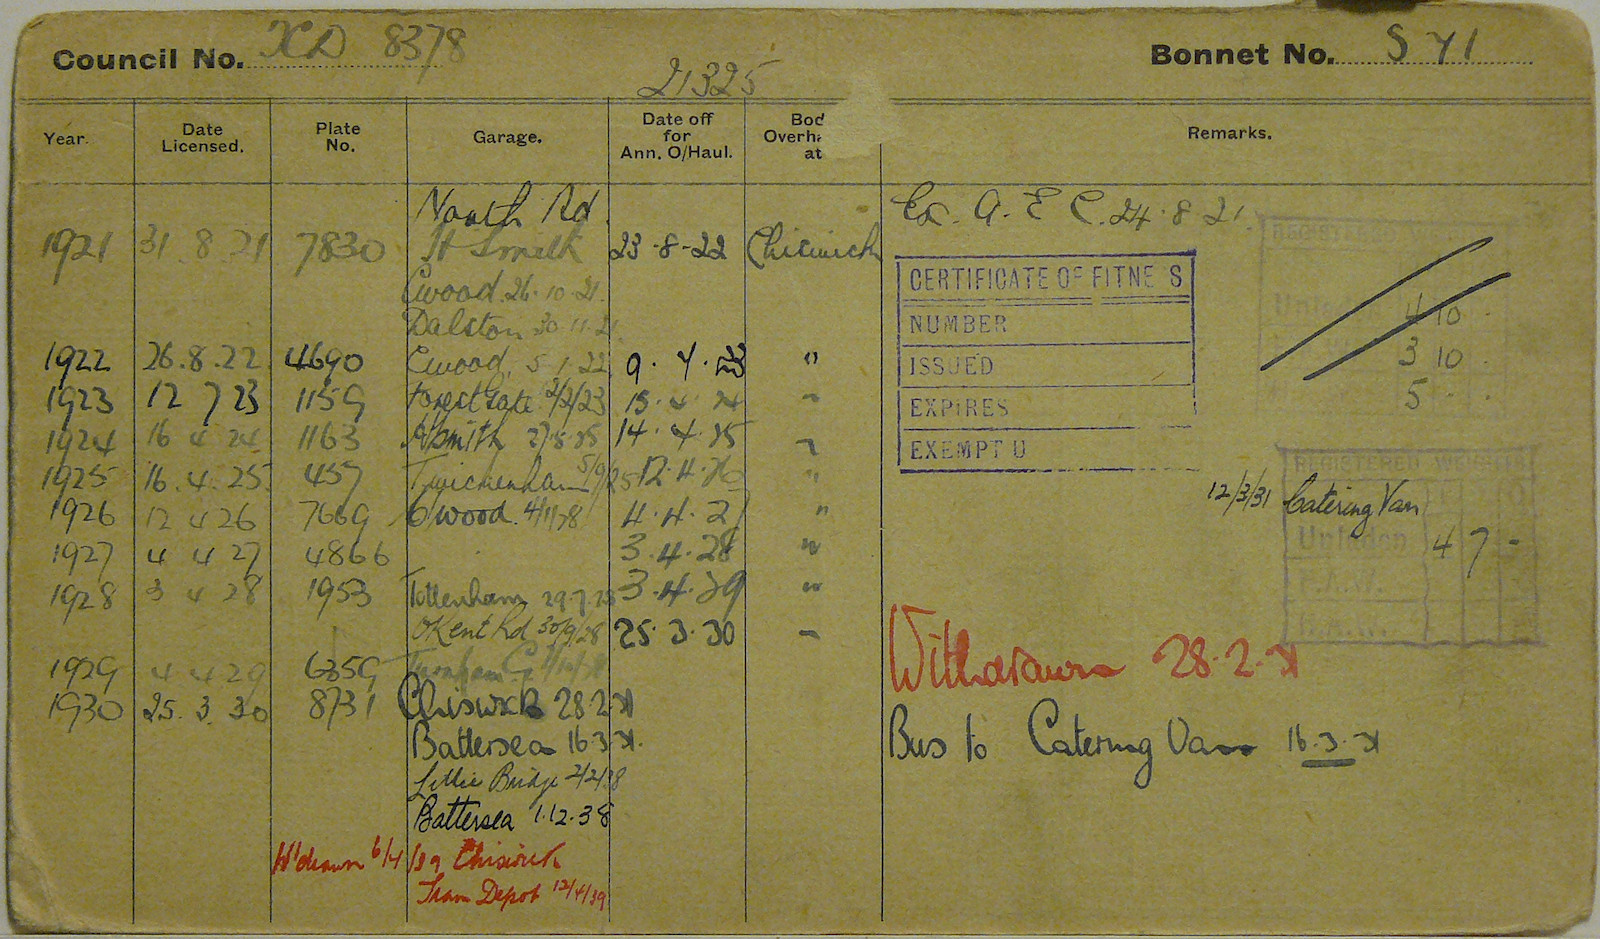 Council No. XD 8378
Bonnet No. S 41
21325
Year. Date Licensed. Plate No. Garage. Date off for Ann. O/Haul. Bod Overha at Remarks.
North Rd. Ex. A. E C. 24.8.21.
1921 31.8.21 7830 H Smith 23-8-22 Chiswick
REGISTERED WEIGHTS
CERTIFICATE OF FITNE S
Cwood. 26.10.21.
Unladen 4 10
NUMBER
Dalston 30.11.21
3 10
1922 26.8.22 4690 Cwood. 5.1.22 9.4.23 "
ISSUED
1923 12 7 23 1159 Forest Gate 2/2/23 15.4.24 "
EXPIRES
5
1924 16 4 24 1163 Hsmith 27.8.25 14.4.25 "
EXEMPT U
1925 16.4.25 457 Twickenham 5/9/25 12.4.26 "
REGISTERED WEIGHTS
12/3/31 Catering Van
1926 12 4 26 7669 Cwood. 4/11/28 4.4.27 "
Unladen 4 7 -
1927 4 4 27 4866 3.4.28 "
F.A.W.
1928 3 4 28 1953 Tottenham 29.7.28 3.4.29 "
OKent Rd 30/9/28 25.3.30 "
Withdrawn 28.2.31
1929 4 4 29 6359 Turnham G.
1930 25.3.30 8731 Chiswick 28.2.31
Battersea 16.3.31.
Bus to Catering Van 16.3.31
Lillie Bridge 2/2/38
Battersea 1.12.38
W'drawn 6/4/39 Chiswick
Tram Depot 12/4/39